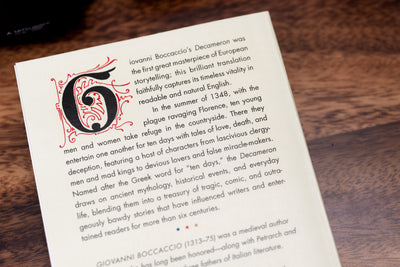 Giovanni Boccaccio's Decameron was
the first great masterpiece of European
storytelling; this brilliant translation
faithfully captures its timeless vitality in
readable and natural English.
In the summer of 1348, with the
plague ravaging Florence, ten young
men and women take refuge in the countryside. There they
entertain one another for ten days with tales of love, death, and
deception, featuring a host of characters from lascivious clergy-
men and mad kings to devious lovers and false miracle-makers.
Named after the Greek word for "ten days," the Decameron
draws on ancient mythology, historical events, and everyday
life, blending them into a treasury of tragic, comic, and outra-
geously bawdy stories that have influenced writers and enter-
tained readers for more than six centuries.
GIOVANNI BOCCACCIO (1313–75) was a medieval author
has long been honored—along with Petrarch and
fathers of Italian literature.